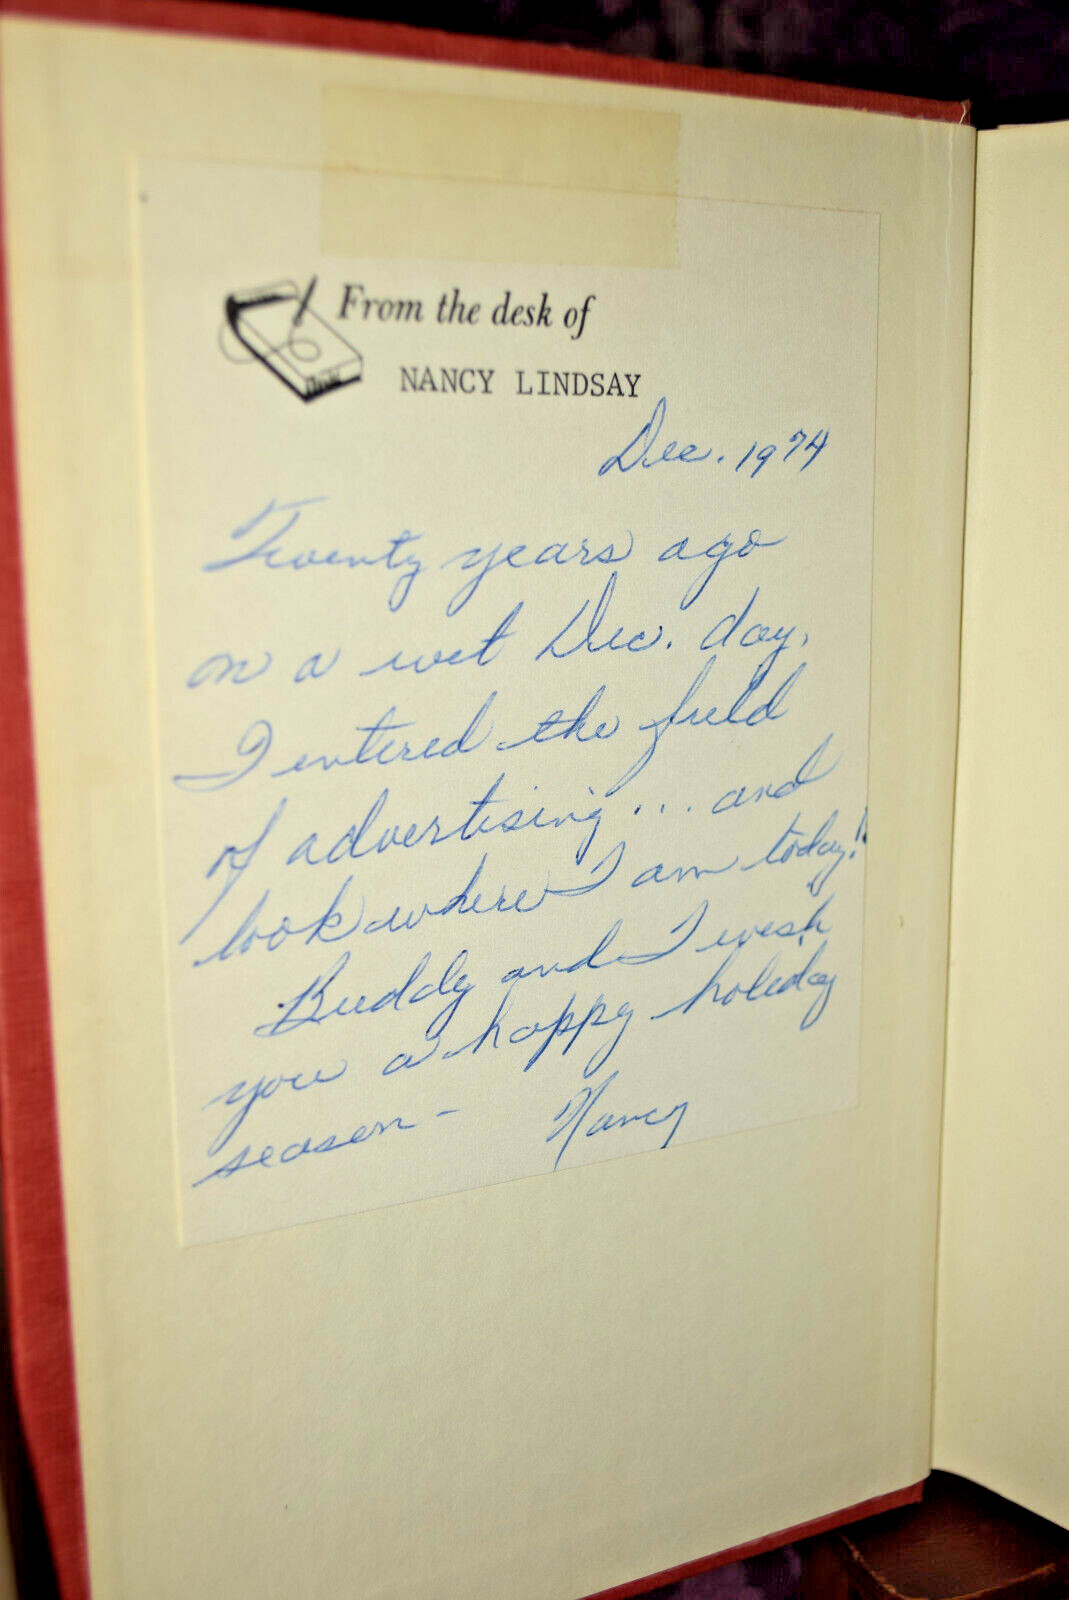 From the desk of
NANCY LINDSAY
Dec. 1974
Twenty years ago
on a wet Dec. day,
I entered the field
of advertising... and
look where I am today!
Buddy and I wish
you a happy holiday
season - Nancy